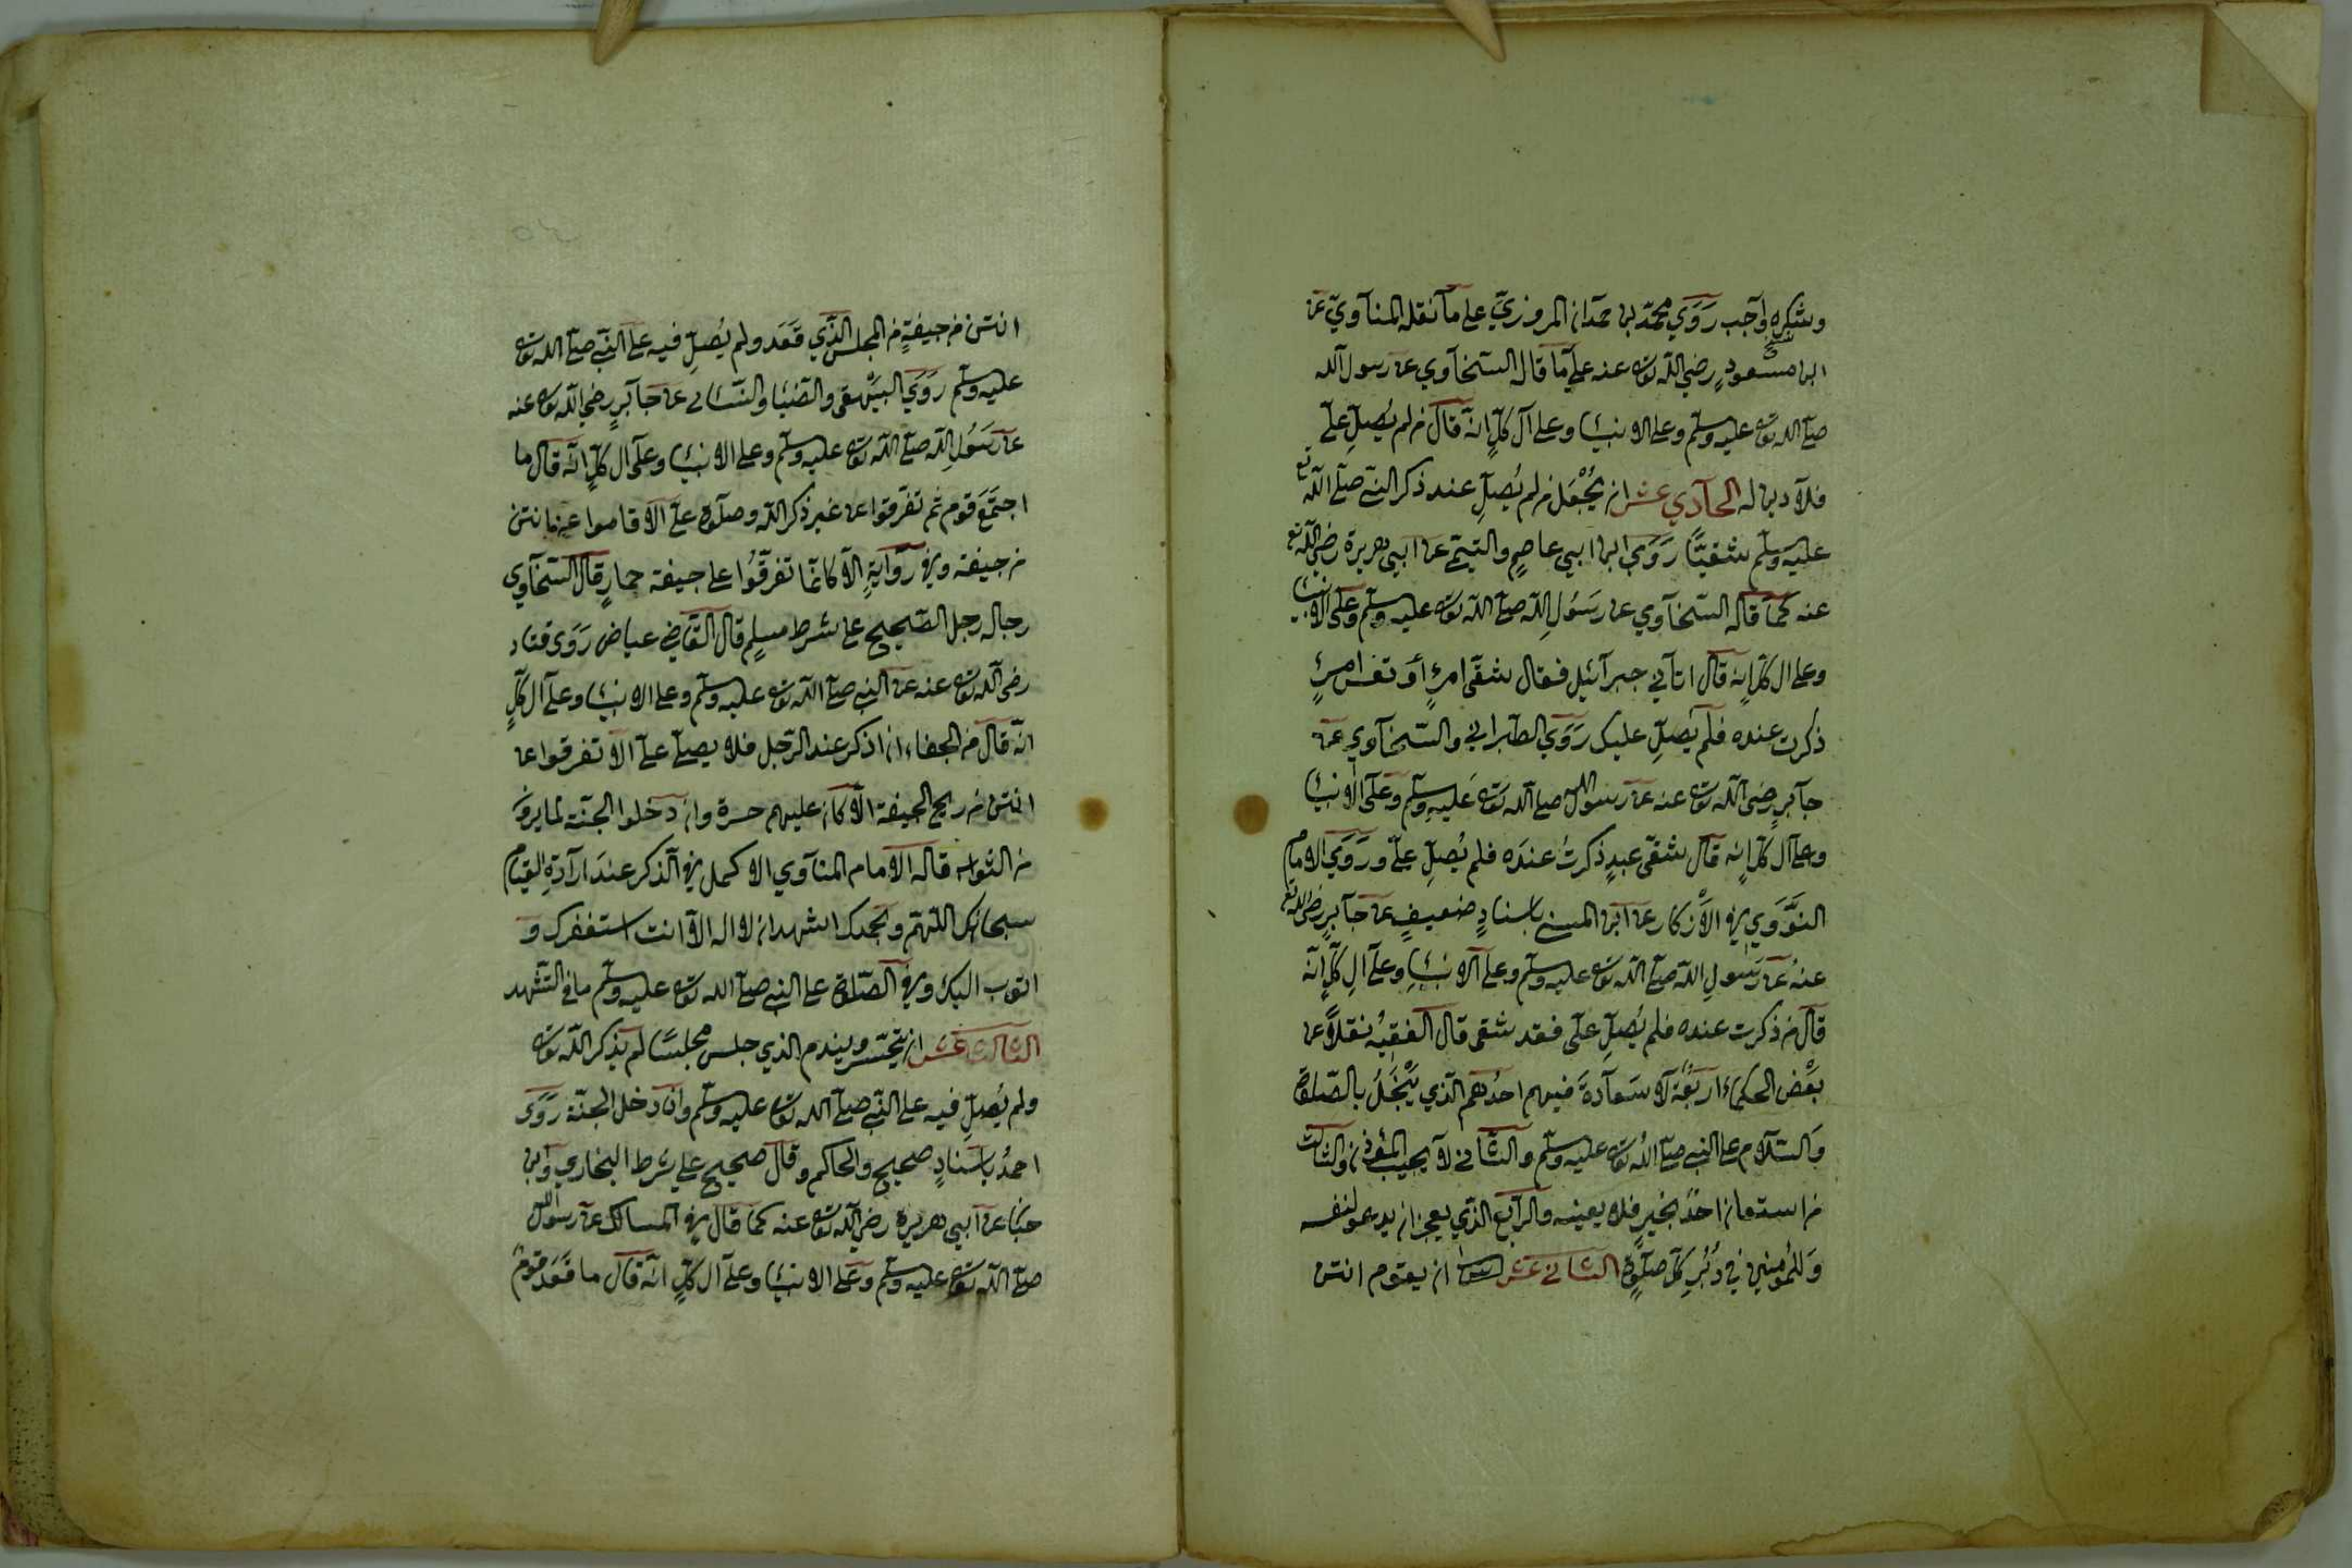 وشكره واجب روي محمّد بن حمدان المروزيّ على ما نقله المناويّ عن
ابن مسعودٍ رضي اللّه تعالى عنه على ما قال السّخاوي عن رسول اللّه
صلّى اللّه تعالى عليه وسلّم وعلى الانبياء وعلى آل كلٍّ انّه قال من لم يُصلِّ علىّ
فلا دين له الحادي عشر ان يُجْعَل من لم يُصلِّ عند ذكر النبيّ صلّى اللّه تع
عليه وسلّم شقيًّا رَوَي ابن ابي عاصمٍ والتيميّ عن ابي هريرة رضي اللّه تع
عنه كما قاله السّخاوي عن رَسُولِ اللّه صلّى اللّه تعالى عليه وسلّم وعلى الانبياء
وعلى ال كلٍّ انّه قال اتاني جبرآئيل فقال شقى امرءٍ أو تعس امرءٍ
ذكرت عنده فلم يُصلِّ عليك رَوَي الطبراني والسّخاوي عن
جابرٍ رضى اللّه تعالى عنه عن رسول اللّه صلى اللّه تعالى عليه وسلّم وعلى الانبياء
وعلى آل كلٍّ انّه قال شقى عبدٍ ذكرتُ عنده فلم يُصلِّ علىّ ورَوَي الامام
النوَوي في الاذكار عن ابن السني باسنادٍ ضعيفٍ عن جابرٍ رضى اللّه تع
عنهُ عن رسولِ اللّه صلّى اللّه تعالى عليه وسلّم وعلى الانبياءِ وعلى آلِ كلٍّ انّه
قال من ذكرت عنده فلم يُصلِّ علىّ فقد شقى قال الفقيهُ نقلاً عن
بَعْض الحكماءِ اربعَة لا سَعادةَ فيهم احدُهم الذي يَبْخَلُ بالصّلوة
وَالسّلام على النبي صلّى اللّه تعالى عليه وسلّم والثاني لا يجيب المؤذن والثالث
من استعان احدٌ بخيرٍ فلا يعينه والرابع الذي يعجز ان يدعو لنفسه
وَللمُؤمنين في دُبُرِ كلّ صلوةٍ الثاني عشر ان يقوم انتن
انتن من جيفةٍ من المجلس الّذي قَعَد ولم يُصلِّ فيه على النبّي صلّى اللّه تعالى
عليه وسلّم رَوَي البَيْهقي والضّيا والنّسائي عن جابرٍ رضي اللّه تعالى عنه
عن رَسُولِ اللّه صلّى اللّه تعالى عليه وسلّم وعلى الانبياء وعلى آل كلٍّ انّه قال ما
اجتمَعَ قوم ثم تفرّقوا عن غير ذكر اللّه وصلوة علىّ الّا قاموا عن انتن
من جيفة وفي روايةٍ الّا كانما تفرّقُوا على جيفة حمارٍ قال السّخاوي
رجاله رجل الصّحيح على شرط مسلمٍ قال القاضي عياض رَوَى قتاد
رضى اللّه تعالى عنه عن النبي صلّى اللّه تعالى عليه وسلّم وعلى الانبياء وعلى آل كلٍّ
انّه قال من الجفاء ان اذكر عند الرّجل فلا يصلّي علىّ الّا تفرقوا عن
انتن من ريح الجيفة الّا كان عليهم حسرة وان دخلوا الجنّة لما يرون
من الثواب قاله الامام المناوي الاكمل في الذكر عندَ ارادةِ القيام
سبحانك اللّهمّ وبحمدك اشهد ان لا اله الّا انت استغفرك و
اتوب اليك وفي الصّلوة على النبي صلّى اللّه تعالى عليه وسلّم ما في التّشهد
الثالث عشر ان يتحسّر ويندم الذي جلس مجلسًا لم يذكر اللّه تعالى
ولم يُصلِّ فيه على النبّي صلّى اللّه تعالى عليه وسلّم وان دخل الجنّة رَوَى
احمدُ باسنادٍ صحيح والحاكم وقال صحيح على شرط البخاري وابن
حبّان عن ابي هريرة رضي اللّه تعالى عنه كما قال في المسالك عن رسول اللّه
صلّى اللّه تعالى عليه وسلّم وعلى الانبياء وعلى آل كلٍّ انّه قال ما قَعَدَ قومٌ